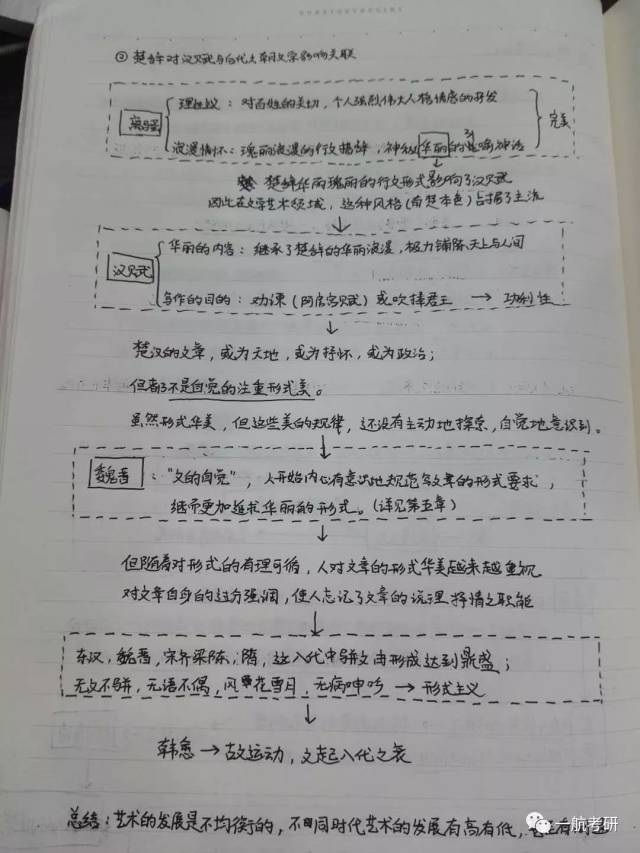 ② 楚辞对汉赋与后代文章文学影响关联
离骚
理性主义：对百姓的关切，个人强烈伟大人格情序的开发
浪漫情怀：瑰丽浪漫的行文措辞，神秘华丽的 神话
完美
楚辞华丽瑰丽的行文形式影响了汉赋
因此在文学艺术领域，这种风格（南楚本色）占据了主流
汉赋
华丽的内容：继承了楚辞的华丽浪漫，极力铺陈天上与人间
写作的目的：劝谏（阿房宫赋）或吹捧君王 → 功利性
楚汉的文章，或为天地，或为抒怀，或为政治；
但都不是自觉的注重形式美。
虽然形式华美，但这些美的规律，还没有主动地探索，自觉地意识到。
魏晋
：“文的自觉”，人开始内心有意识地规范写文章的形式要求，
继而更加追求华丽的形式。（详见第五章）
但随着对形式的有理可循，人对文章的形式华美越来越重视
对文章自身的过分强调，使人忘记了文章的说理抒情之职能
东汉，魏晋，宋齐梁陈，隋，这八代中骈文由形成达到鼎盛；
无文不骈，无语不偶，风花雪月，无病呻吟 → 形式主义
韩愈 → 古文运动，文起八代之衰
总结：艺术的发展是不均衡的，不同时代艺术的发展有高有低，
一航考研